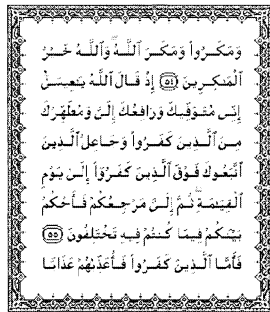 وَمَكَرُوا۟ وَمَكَرَ ٱللَّهُ ۖ وَٱللَّهُ خَيْرُ
ٱلْمَٰكِرِينَ ٥٤ إِذْ قَالَ ٱللَّهُ يَٰعِيسَىٰٓ
إِنِّى مُتَوَفِّيكَ وَرَافِعُكَ إِلَىَّ وَمُطَهِّرُكَ
مِنَ ٱلَّذِينَ كَفَرُوا۟ وَجَاعِلُ ٱلَّذِينَ
ٱتَّبَعُوكَ فَوْقَ ٱلَّذِينَ كَفَرُوٓا۟ إِلَىٰ يَوْمِ
ٱلْقِيَٰمَةِ ۖ ثُمَّ إِلَىَّ مَرْجِعُكُمْ فَأَحْكُمُ
بَيْنَكُمْ فِيمَا كُنتُمْ فِيهِ تَخْتَلِفُونَ ٥٥
فَأَمَّا ٱلَّذِينَ كَفَرُوا۟ فَأُعَذِّبُهُمْ عَذَابًا